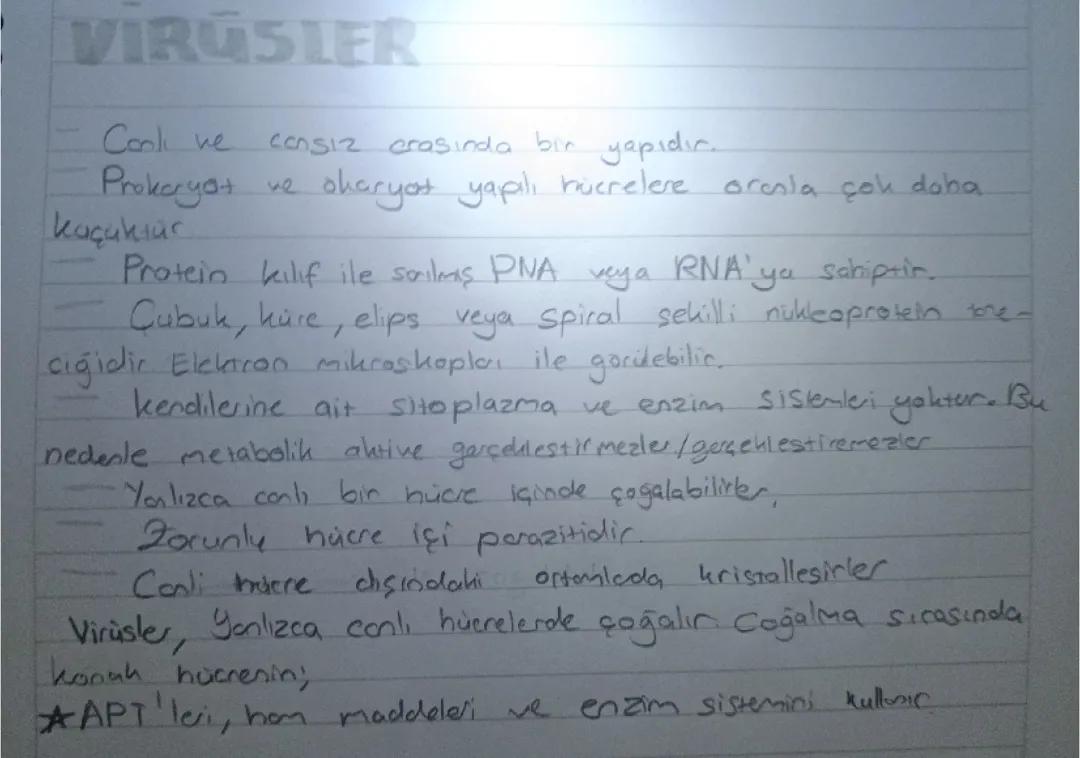 VİRÜSLER
— Canlı ve cansız arasında bir yapıdır.
— Prokaryot ve ökaryot yapılı hücrelere oranla çok daha
küçüktür
— Protein kılıf ile sarılmış DNA veya RNA'ya sahiptir.
— Çubuk, küre, elips veya spiral şekilli nükleoprotein tane-
ciğidir Elektron mikroskopları ile görülebilir.
— kendilerine ait sitoplazma ve enzim sistemleri yoktur. Bu
nedenle metabolik aktive gerçekleştirmezler/gerçekleştiremezler
— Yanlızca canlı bir hücre içinde çoğalabilirler,
— Zorunlu hücre içi parazitidir.
— Canli hücre dışındaki ortamlarda kristalleşirler
Virüsler, Yanlızca canlı hücrelerde çoğalır Çoğalma sırasında
konak hücrenin;
★APT'leri, ham maddeleri ve enzim sistemini kullanır